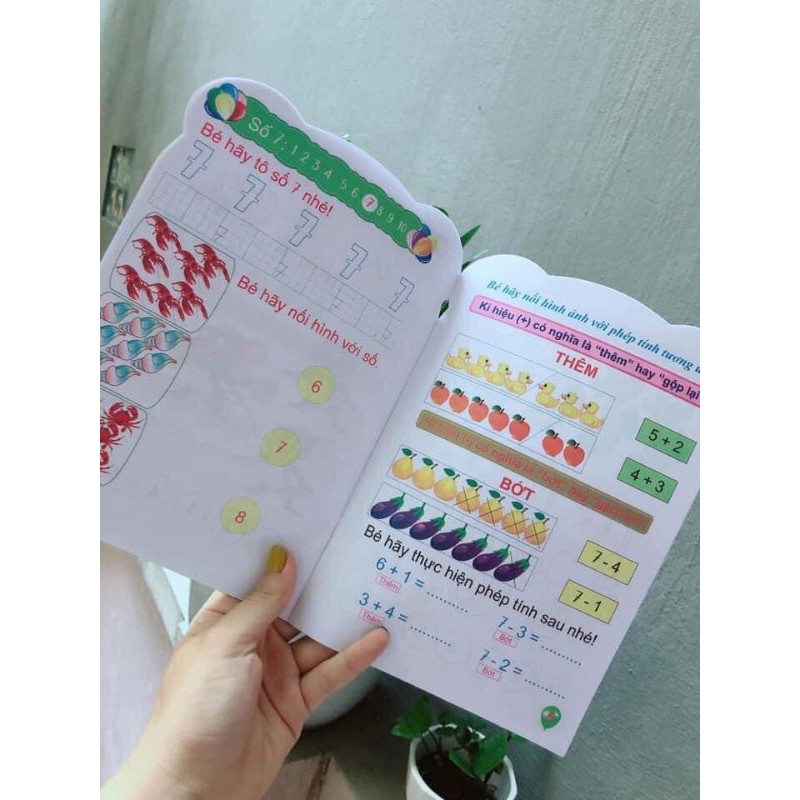 Số 7: 1 2 3 4 5 6 7 8 9 10
Bé hãy tô số 7 nhé!
7 7 7 7 7
Bé hãy nối hình với số.
6
7
8
Bé hãy nối hình ảnh với phép tính tương
Kí hiệu (+) có nghĩa là "thêm" hay "gộp lại
THÊM
5 + 2
4 + 3
Kí hiệu (-) có nghĩa là "bớt" hay "gạch bỏ"
BỚT
7 - 4
7 - 1
Bé hãy thực hiện phép tính sau nhé!
6 + 1 = ..........
Thêm
7 - 3 = ..........
Bớt
3 + 4 = ..........
Thêm
7 - 2 = ..........
Bớt